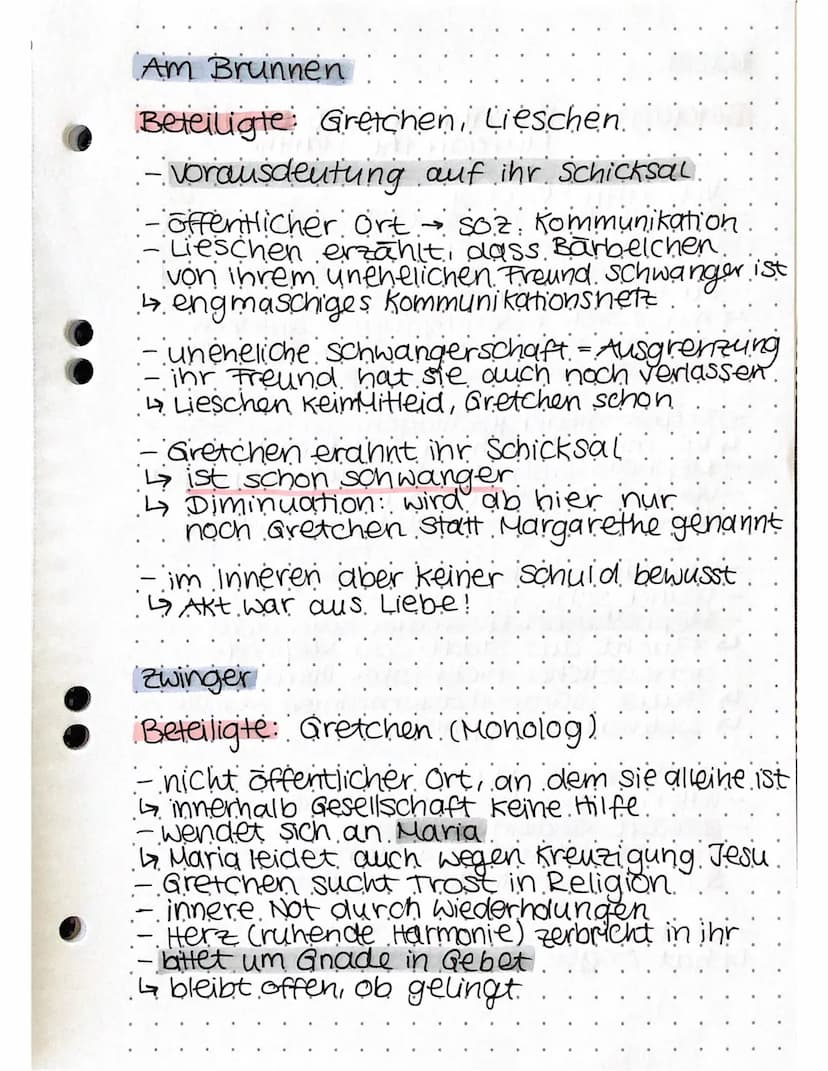 Am Brunnen
Beteiligte: Gretchen, Lieschen
- Vorausdeutung auf ihr Schicksal
- öffentlicher Ort → soz. Kommunikation
- Lieschen erzählt, dass Bärbelchen
von ihrem unehelichen Freund schwanger ist
↳ engmaschiges Kommunikationsnetz
- uneheliche Schwangerschaft = Ausgrenzung
- ihr Freund hat sie auch noch verlassen
↳ Lieschen kein Mitleid, Gretchen schon
- Gretchen erahnt ihr Schicksal
↳ ist schon schwanger
↳ Diminuation: wird ab hier nur
noch Gretchen statt Margarethe genannt
- im Inneren aber keiner Schuld bewusst
↳ Akt war aus Liebe!
Zwinger
Beteiligte: Gretchen (Monolog)
- nicht öffentlicher Ort, an dem sie alleine ist
↳ innerhalb Gesellschaft keine Hilfe
- wendet sich an Maria
↳ Maria leidet auch wegen Kreuzigung Jesu
- Gretchen sucht Trost in Religion
- innere Not durch Wiederholungen
- Herz (ruhende Harmonie) zerbricht in ihr
- bittet um Gnade in Gebet
↳ bleibt offen, ob gelingt